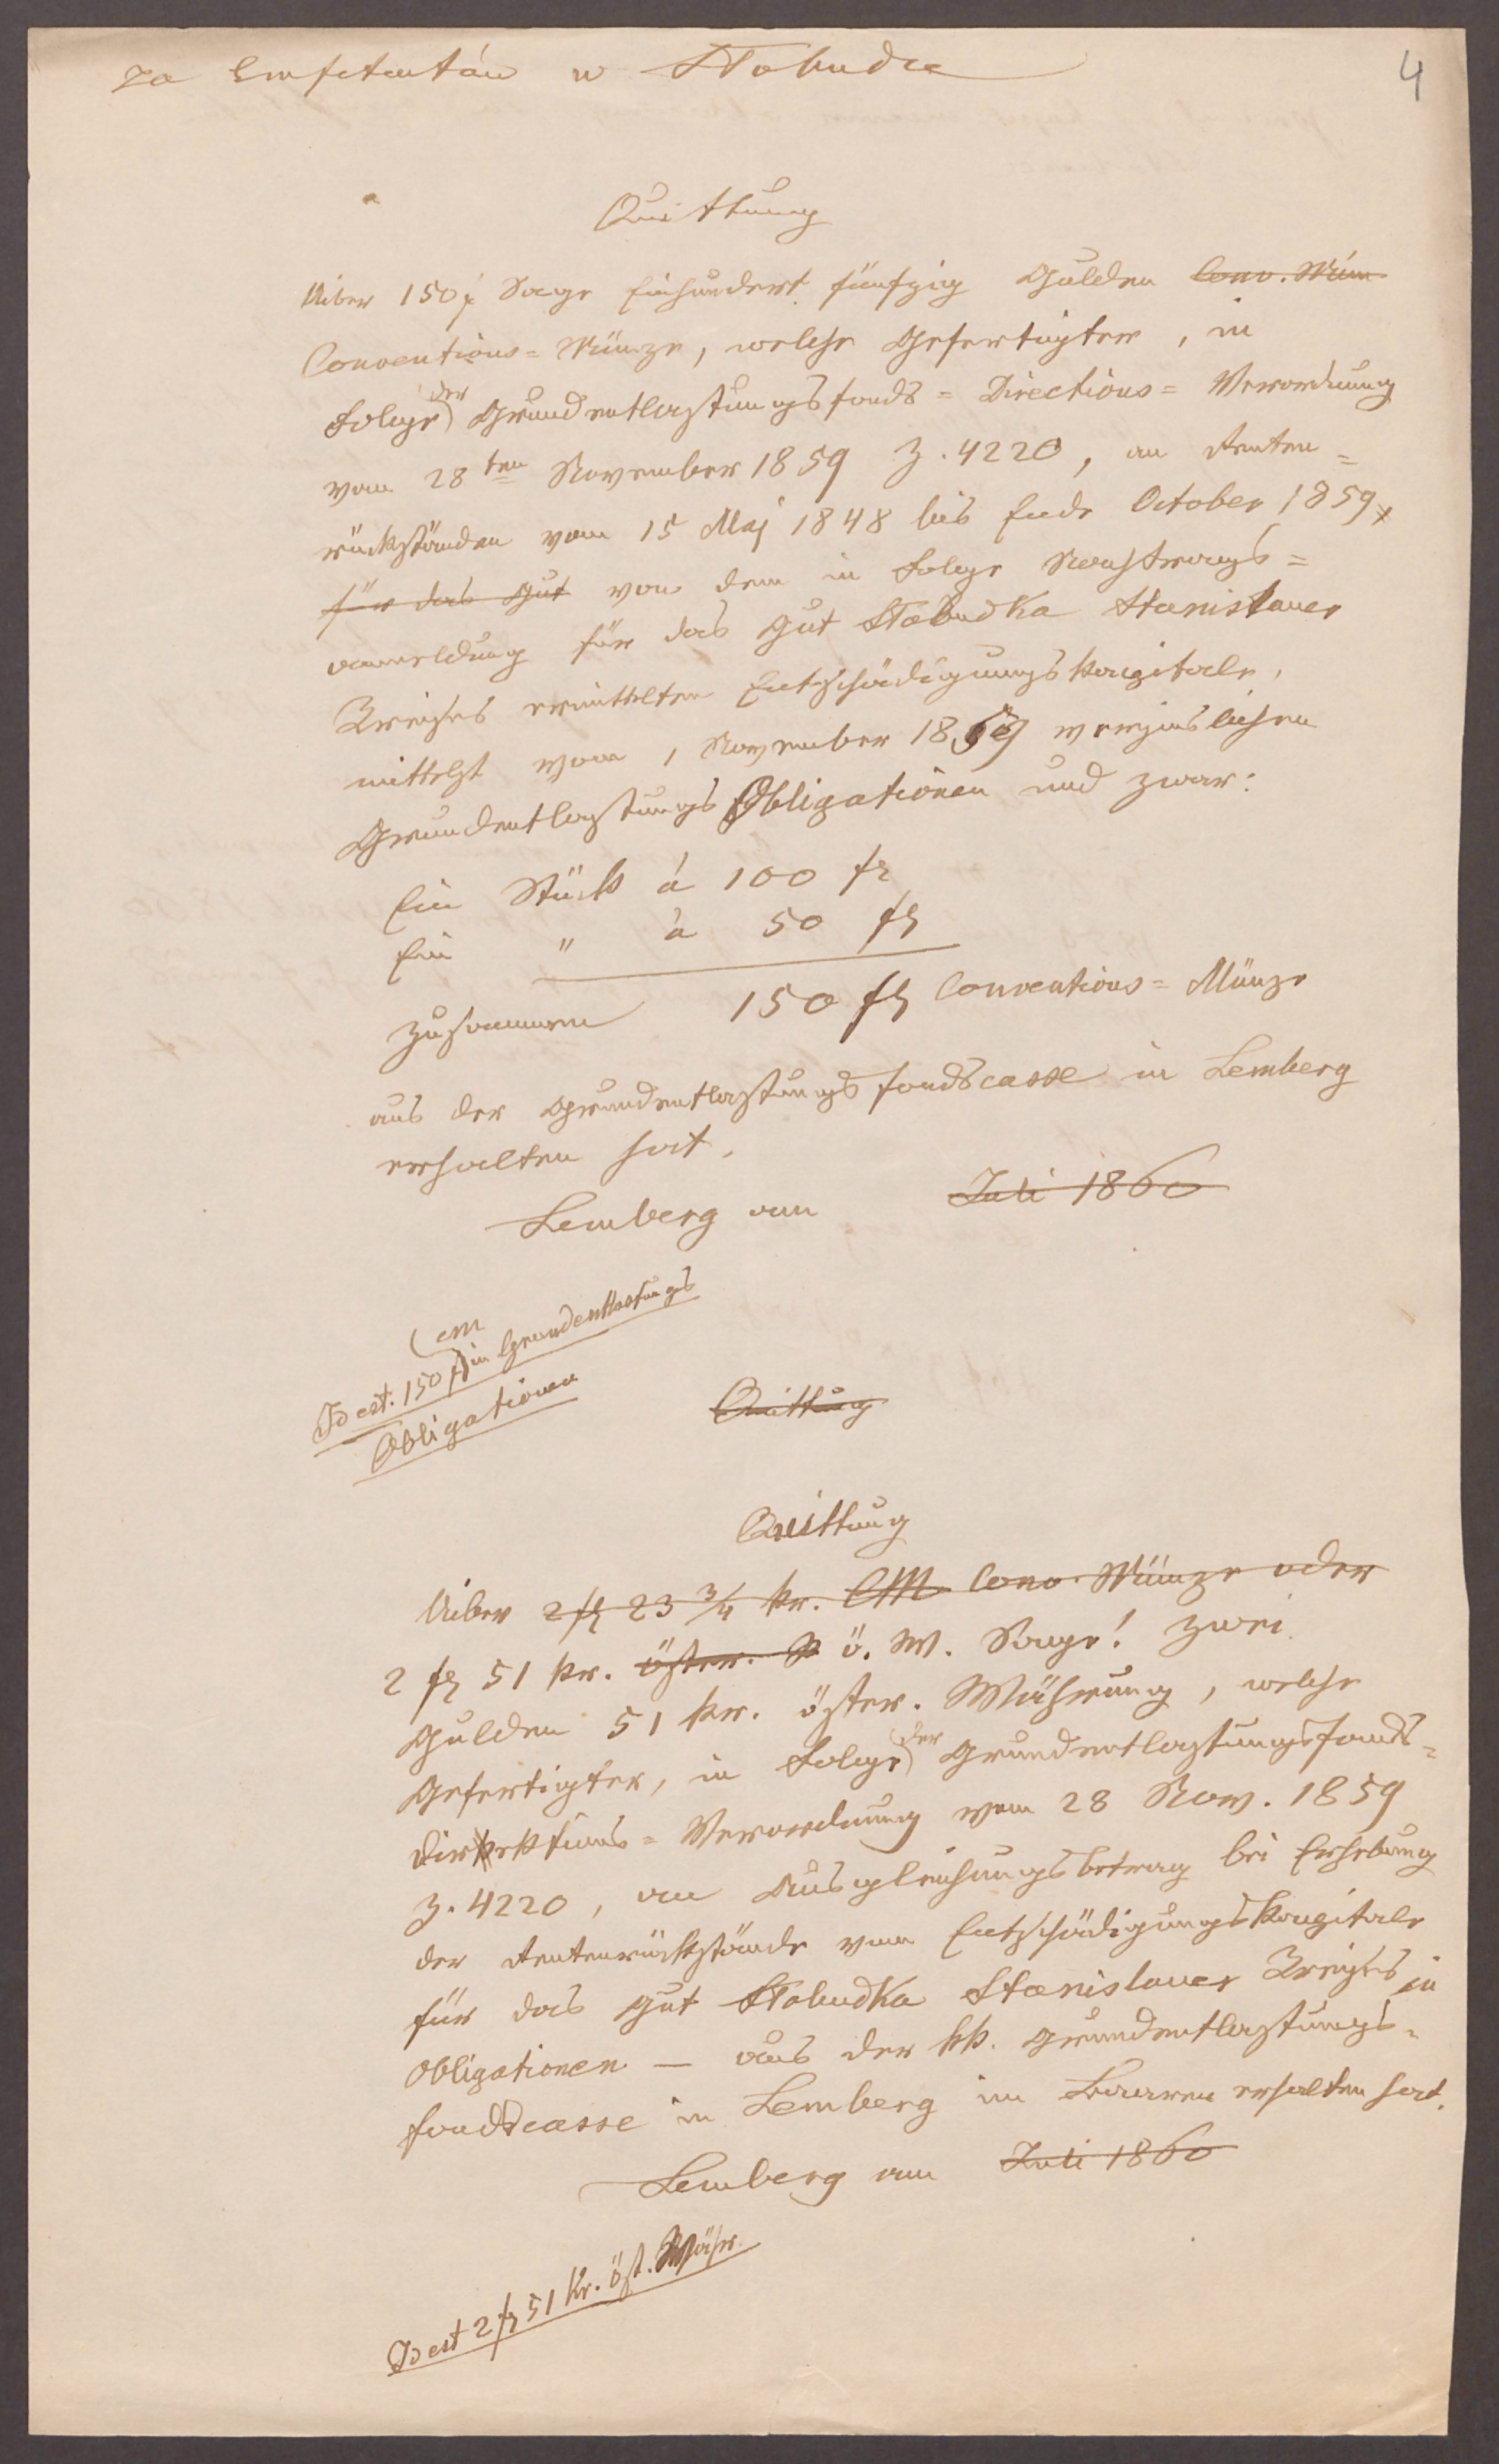 za Emfiteutów w Słobudce
4
Quittung
Uiber 150 f Sage Einhundert fünfzig Gulden Conv. Mün
Conventions= Münze, welche Gefertigter, in
Folge der Grundentlastungsfonds= Directions= Verordnung
vom 28ten November 1859 Z. 4220, an Renten=
rückständen vom 15 Maj 1848 bis Ende October 1859
für das Gut von dem in Folge Nachtrags=
anmeldung für das Gut Słobudka Stanislauer
Kreises ermittelten Entschädigungskapitale,
mittelst vom 1 November 1859 verzinslichen
Grundentlastungs Obligationen und zwar:
Ein Stück á 100 fl
Ein " à 50 fl
zusammen 150 fl Conventions= Münze
aus der Grundentlastungsfondscasse in Lemberg
erhalten hat.
Lemberg am Juli 1860
Id est: 150 fl CM in Grundentlastungs
Obligationen
Quittung
Quittung
Uiber 2 fl 23 3/4 kr. CM Conv. Münze oder
2 fl 51 kr. öster. W ö. W. Sage! Zwei
Gulden 51 kr. öster. Währung, welche
Gefertigter, in Folge der Grundentlastungsfonds=
Direktions= Verordnung vom 28 Nov. 1859
Z. 4220, an Ausgleichungsbetrag bei Erhebung
der Rentenrückstände vom Entschädigungskapitale
für das Gut Słobudka Stanislauer Kreises in
Obligationen — aus der kk. Grundentlastungs=
fondscasse in Lemberg im Baaren erhalten hat.
Lemberg am Juli 1860
Id est 2 fl 51 kr. öst. Währ.